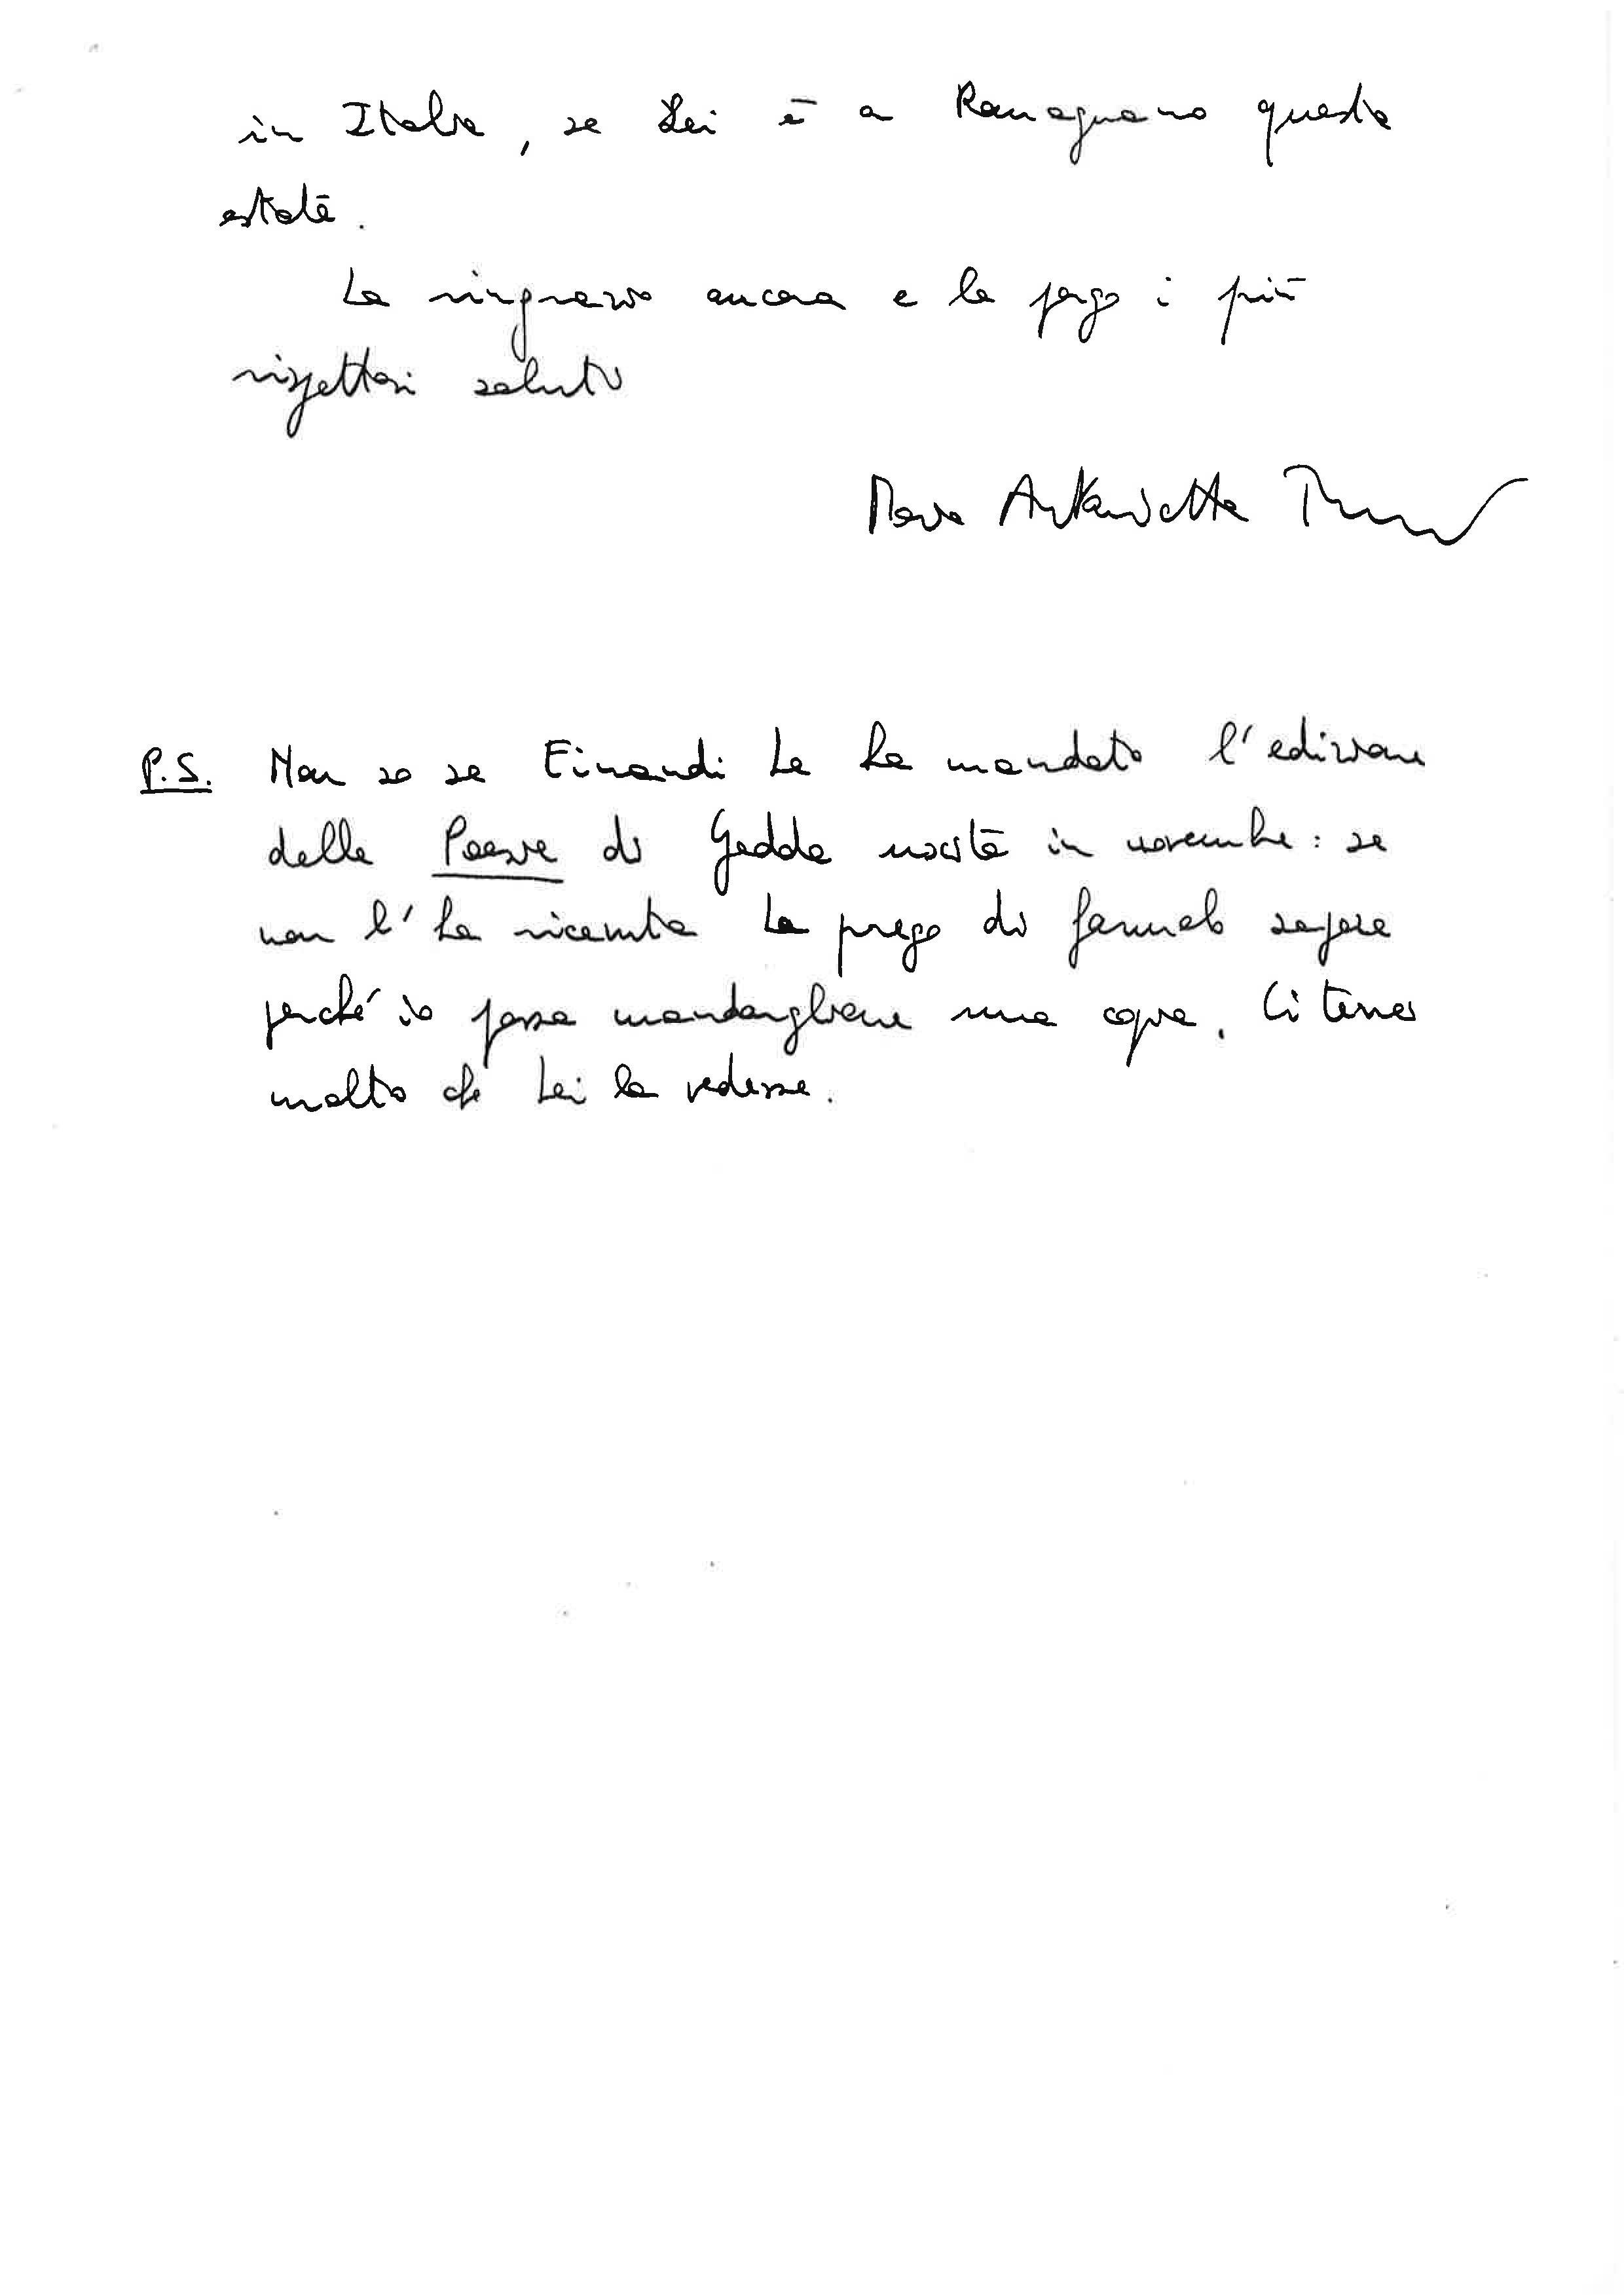 in Italia, se Lei è a Romagnano questa
estate.
La ringrazio ancora e le porgo i più
rispettosi saluti
Maria Antonietta
P.S. Non so se Einaudi Le ha mandato l'edizione
delle Poesie di Gadda uscita in novembre: se
non l'ha ricevuta La prego di farmelo sapere
perché io possa mandargliene una copia. Ci terrei
molto che Lei la vedesse.